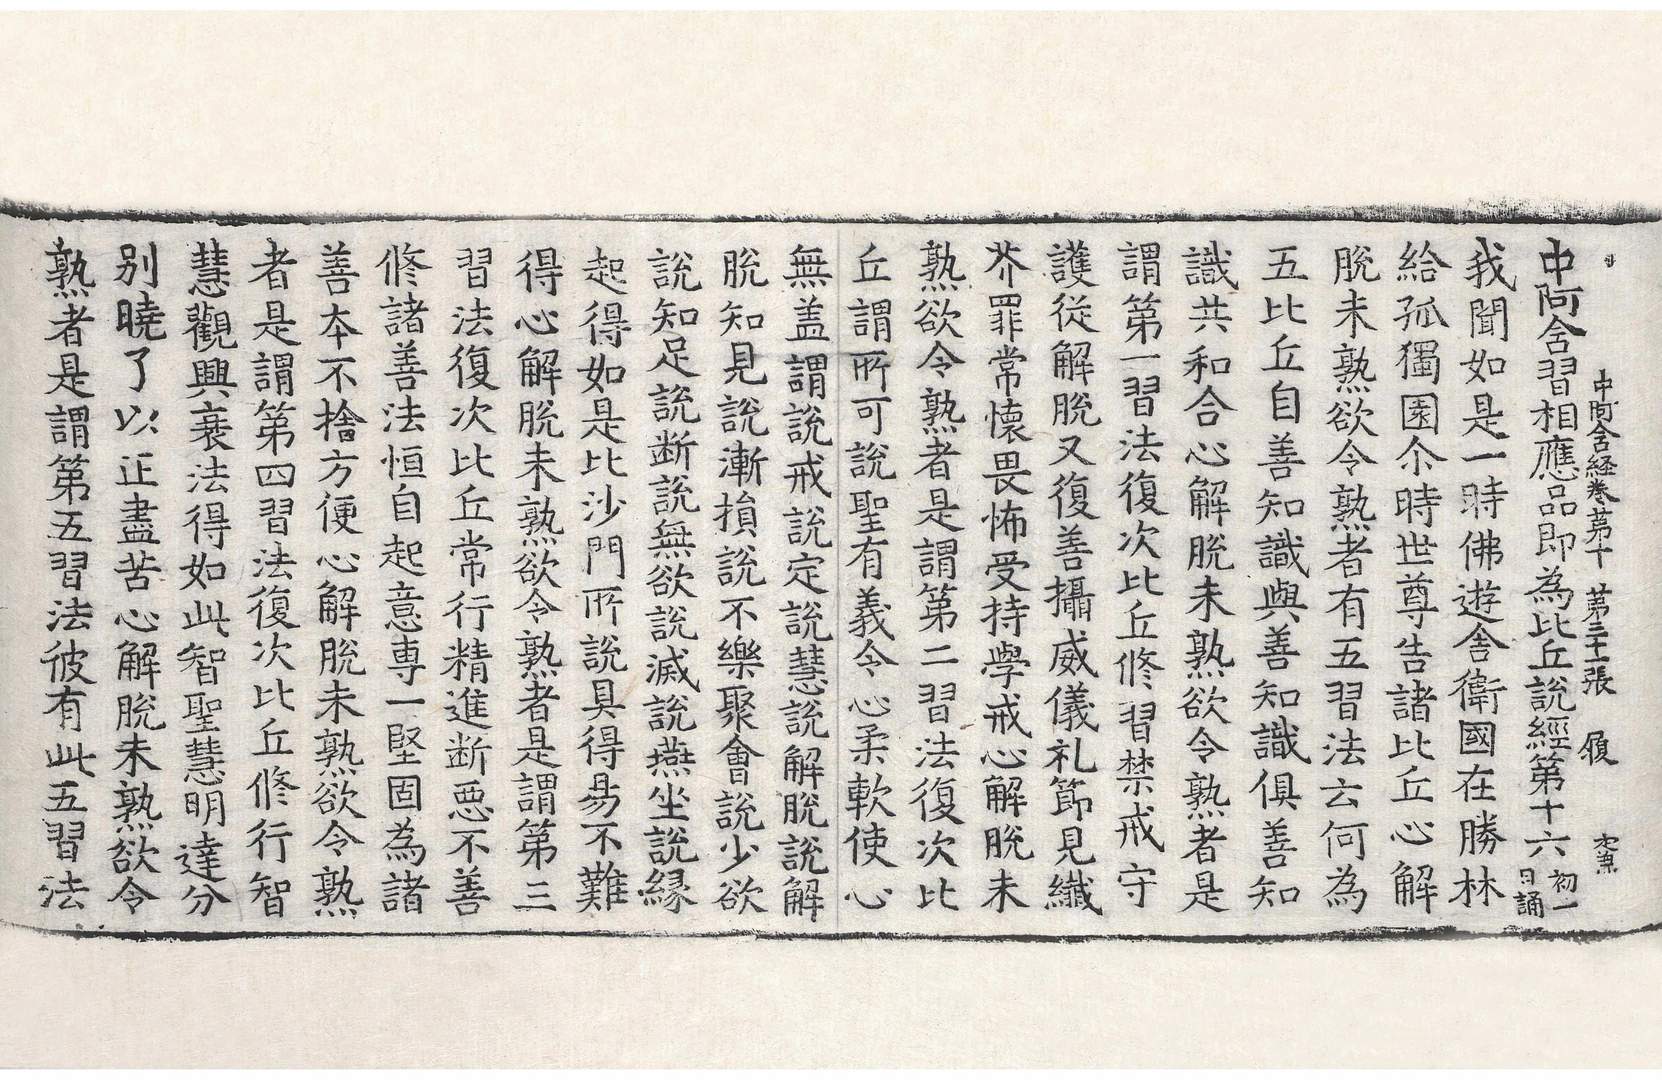 中阿含経巻第十 第三十一張 履
中阿含習相應品即為比丘說經第十六 初一日誦
我聞如是一時佛遊舍衛國在勝林
給孤獨園尒時世尊告諸比丘心解
脫未熟欲令熟者有五習法云何為
五比丘自善知識與善知識俱善知
識共和合心解脫未熟欲令熟者是
謂第一習法復次比丘修習禁戒守
護從解脫又復善攝威儀礼節見纖
芥罪常懷畏怖受持學戒心解脫未
熟欲令熟者是謂第二習法復次比
丘謂所可說聖有義令心柔軟使心
無盖謂說戒說定說慧說解脫說解
脫知見說漸損說不樂聚會說少欲
說知足說断說無欲說滅說燕坐說縁
起得如是比沙門所說具得易不難
得心解脫未熟欲令熟者是謂第三
習法復次比丘常行精進断惡不善
修諸善法恒自起意専一堅固為諸
善本不捨方便心解脫未熟欲令熟
者是謂第四習法復次比丘修行智
慧觀興衰法得如此智聖慧明達分
別曉了以正盡苦心解脫未熟欲令
熟者是謂第五習法彼有此五習法